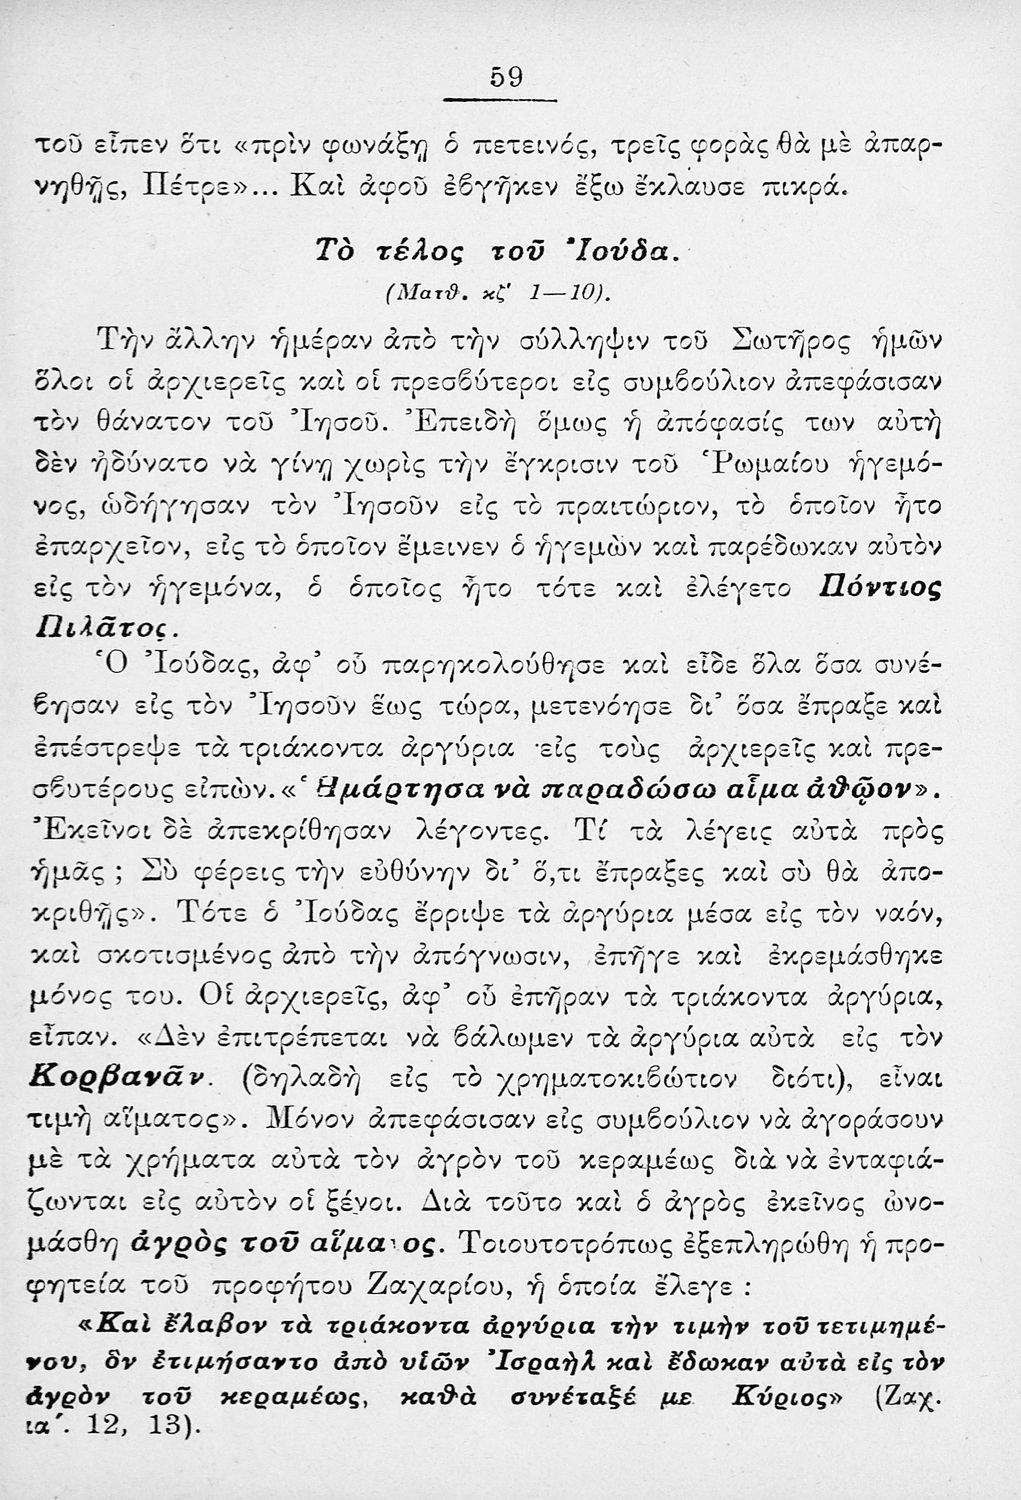 59
τοῦ εἶπεν ὅτι «πρὶν φωνάξῃ ὁ πετεινός, τρεῖς φορὰς θὰ μὲ ἀπαρ-
νηθῇς, Πέτρε»... Καὶ ἀφοῦ ἐβγῆκεν ἔξω ἔκλαυσε πικρά.
Τὸ τέλος τοῦ Ἰούδα.
(Ματθ. κζ' 1—10).
Τὴν ἄλλην ἡμέραν ἀπὸ τὴν σύλληψιν τοῦ Σωτῆρος ἡμῶν
ὅλοι οἱ ἀρχιερεῖς καὶ οἱ πρεσβύτεροι εἰς συμβούλιον ἀπεφάσισαν
τὸν θάνατον τοῦ Ἰησοῦ. Ἐπειδὴ ὅμως ἡ ἀπόφασίς των αὐτὴ
δὲν ἠδύνατο νὰ γίνῃ χωρὶς τὴν ἔγκρισιν τοῦ Ῥωμαίου ἡγεμό-
νος, ὡδήγησαν τὸν Ἰησοῦν εἰς τὸ πραιτώριον, τὸ ὁποῖον ἦτο
ἐπαρχεῖον, εἰς τὸ ὁποῖον ἔμεινεν ὁ ἡγεμὼν καὶ παρέδωκαν αὐτὸν
εἰς τὸν ἡγεμόνα, ὁ ὁποῖος ἦτο τότε καὶ ἐλέγετο Πόντιος
Πιλᾶτος.
Ὁ Ἰούδας, ἀφ' οὗ παρηκολούθησε καὶ εἶδε ὅλα ὅσα συνέ-
βησαν εἰς τὸν Ἰησοῦν ἕως τώρα, μετενόησε δι' ὅσα ἔπραξε καὶ
ἐπέστρεψε τὰ τριάκοντα ἀργύρια εἰς τοὺς ἀρχιερεῖς καὶ πρε-
σβυτέρους εἰπὼν. «Ἡμάρτησα νὰ παραδώσω αἷμα ἀθῷον».
Ἐκεῖνοι δὲ ἀπεκρίθησαν λέγοντες. Τί τὰ λέγεις αὐτὰ πρὸς
ἡμᾶς ; Σὺ φέρεις τὴν εὐθύνην δι' ὅ,τι ἔπραξες καὶ σὺ θὰ ἀπο-
κριθῇς». Τότε ὁ Ἰούδας ἔρριψε τὰ ἀργύρια μέσα εἰς τὸν ναόν,
καὶ σκοτισμένος ἀπὸ τὴν ἀπόγνωσιν, ἐπῆγε καὶ ἐκρεμάσθηκε
μόνος του. Οἱ ἀρχιερεῖς, ἀφ' οὗ ἐπῆραν τὰ τριάκοντα ἀργύρια,
εἶπαν. «Δὲν ἐπιτρέπεται νὰ βάλωμεν τὰ ἀργύρια αὐτὰ εἰς τὸν
Κορβανᾶν. (δηλαδὴ εἰς τὸ χρηματοκιβώτιον διότι), εἶναι
τιμὴ αἵματος». Μόνον ἀπεφάσισαν εἰς συμβούλιον νὰ ἀγοράσουν
μὲ τὰ χρήματα αὐτὰ τὸν ἀγρὸν τοῦ κεραμέως διὰ νὰ ἐνταφιά-
ζωνται εἰς αὐτὸν οἱ ξένοι. Διὰ τοῦτο καὶ ὁ ἀγρὸς ἐκεῖνος ὠνο-
μάσθη ἀγρὸς τοῦ αἵματος. Τοιουτοτρόπως ἐξεπληρώθη ἡ προ-
φητεία τοῦ προφήτου Ζαχαρίου, ἡ ὁποία ἔλεγε :
«Καὶ ἔλαβον τὰ τριάκοντα ἀργύρια τὴν τιμὴν τοῦ τετιμημέ-
νου, ὃν ἐτιμήσαντο ἀπὸ υἱῶν Ἰσραὴλ καὶ ἔδωκαν αὐτὰ εἰς τὸν
ἀγρὸν τοῦ κεραμέως, καθὰ συνέταξέ με Κύριος» (Ζαχ.
ια΄. 12, 13).